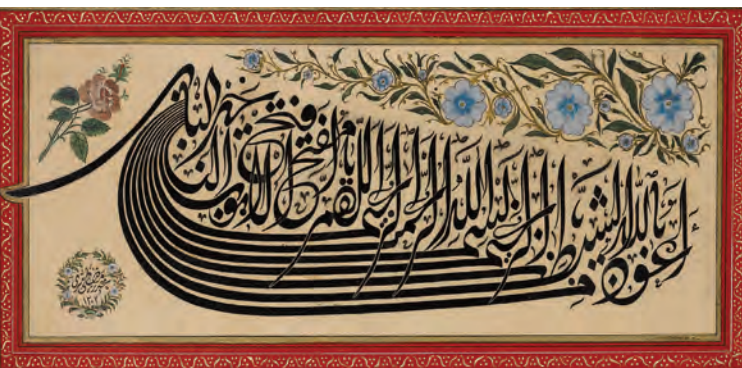 أعوذ بالله من الشيطان الرجيم بسم الله الرحمن الرحيم اللهم يا مفتح الأبواب افتح لنا خير الباب